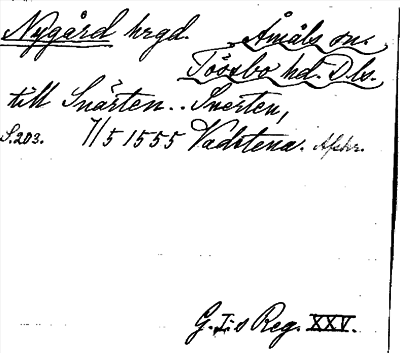 Nygård hrgd. Åmåls sn.
Tössbo hd. Dls.
till Snärten.. Snerten,
S.203. 7/5 1555 Vadstena. Afskr.
G. I:s Reg. XXV.